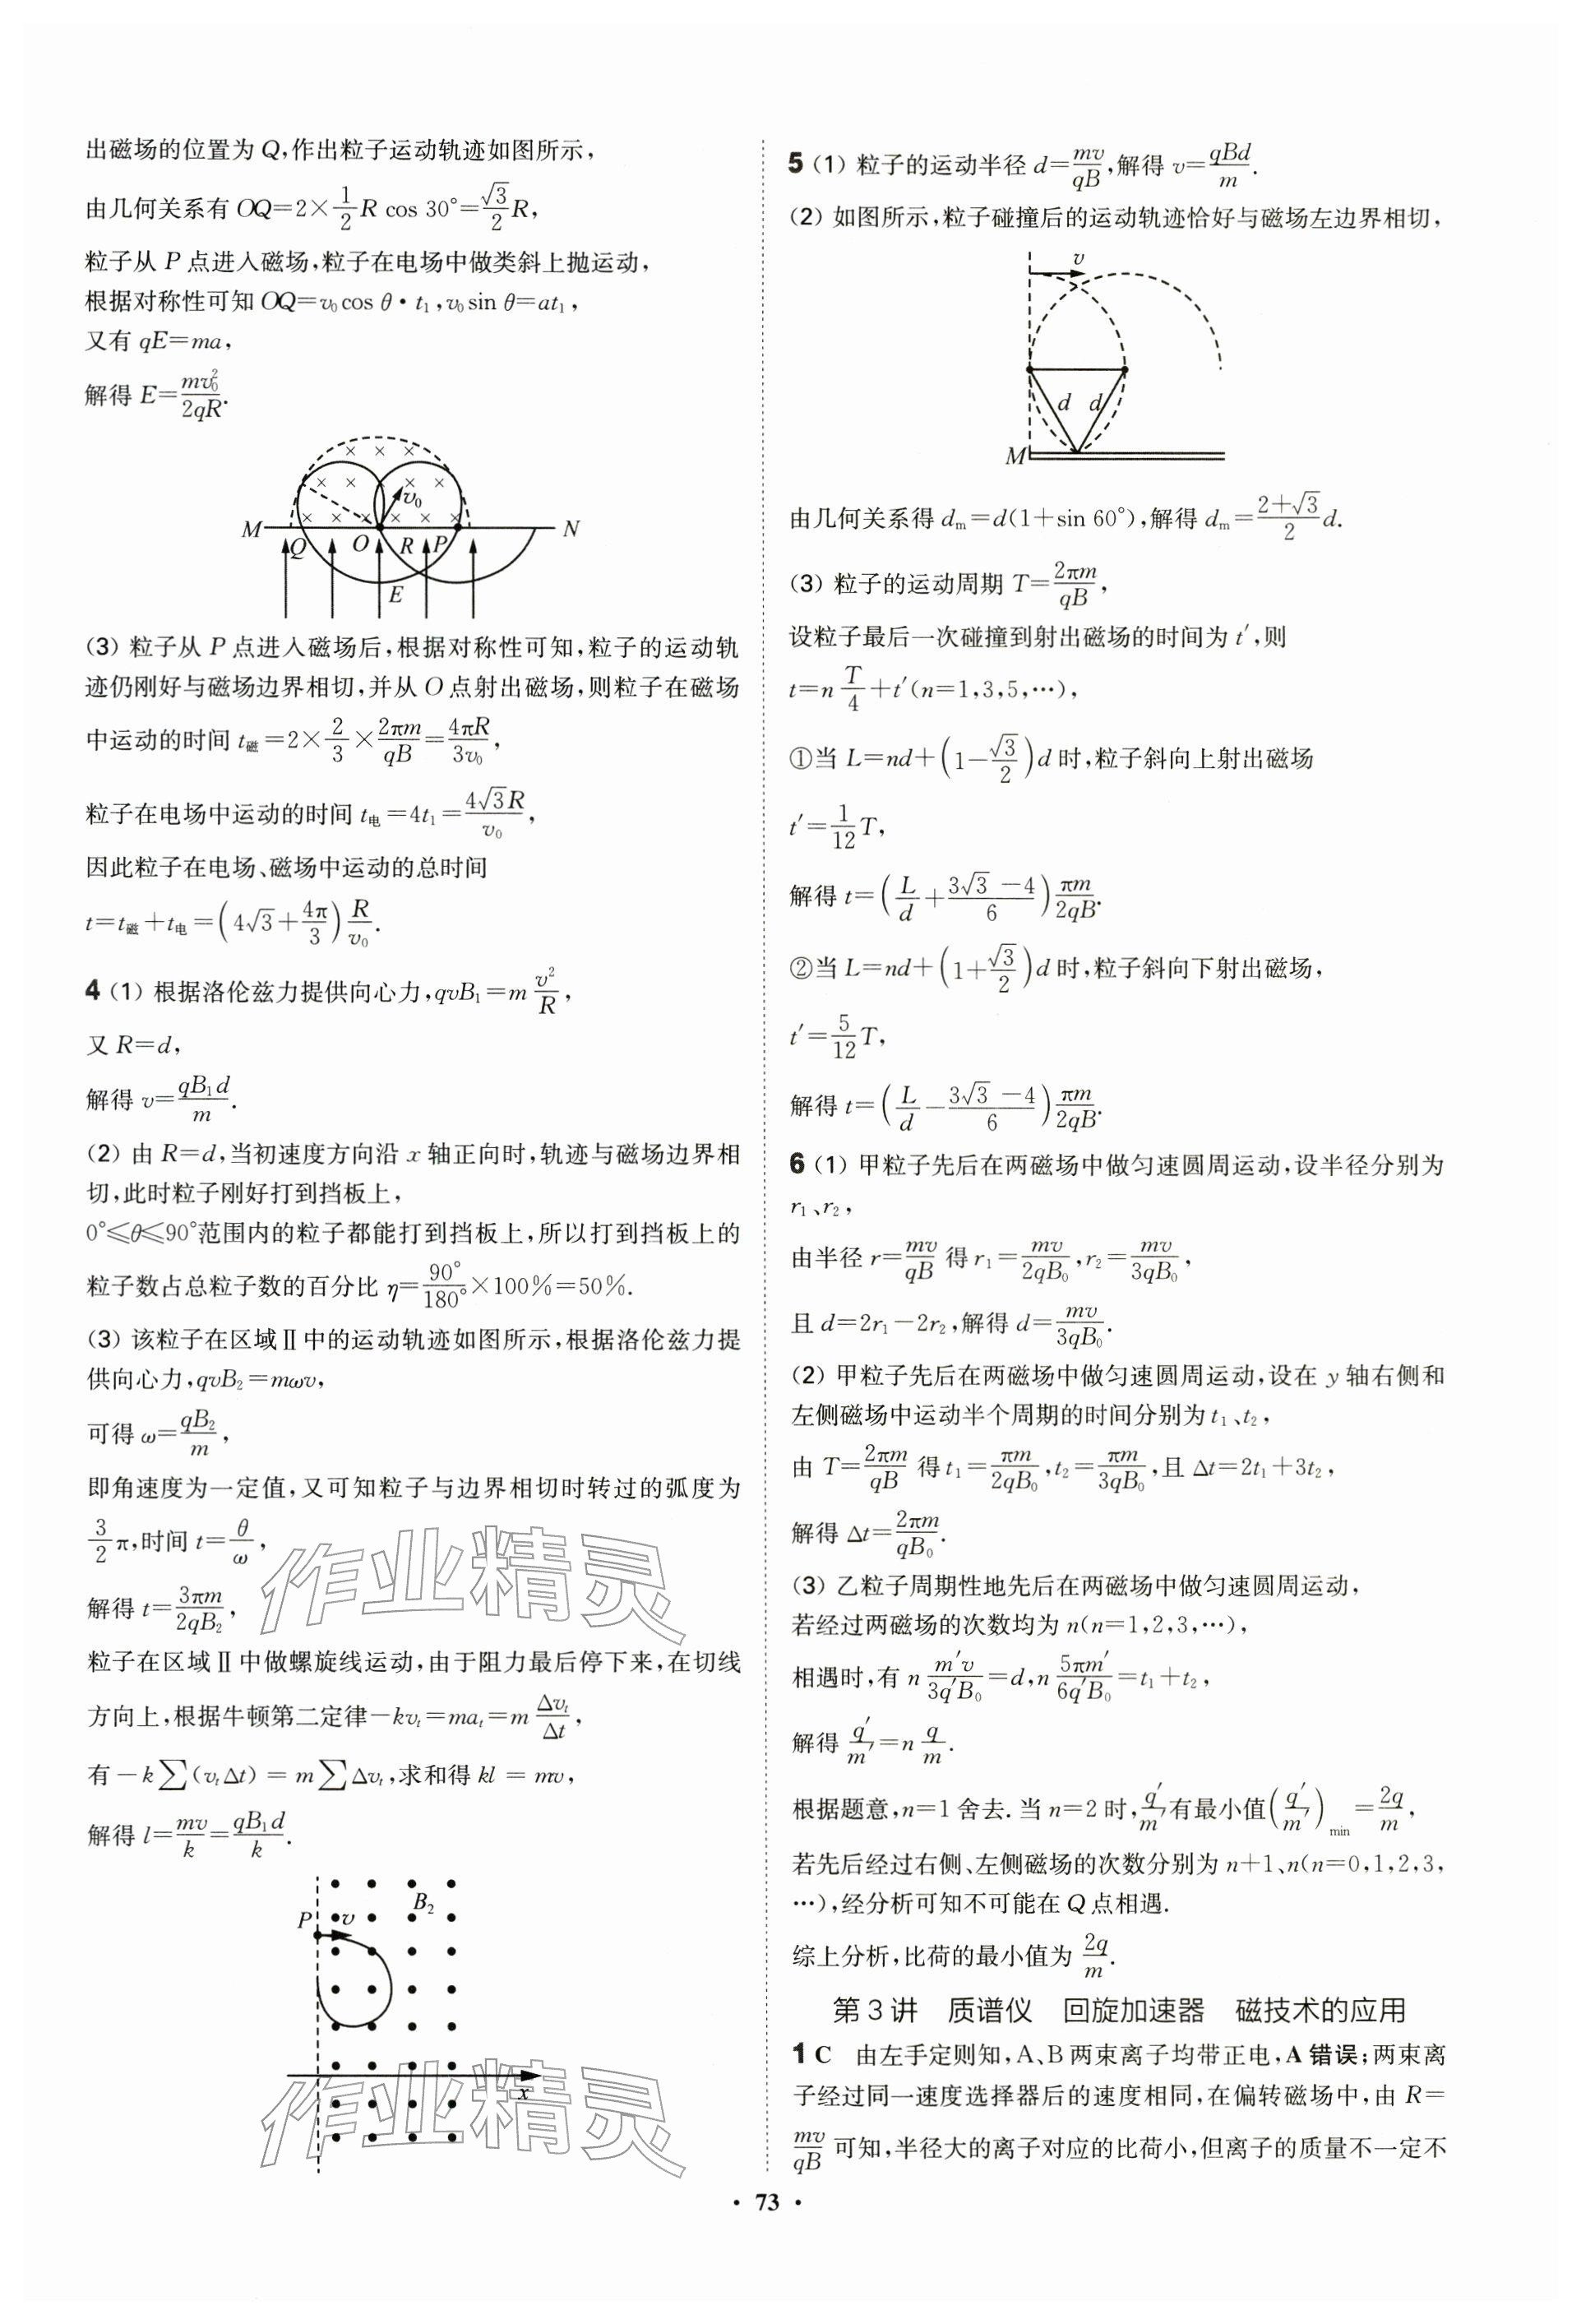 出磁场的位置为 Q,作出粒子运动轨迹如图所示,
由几何关系有 OQ=2×\frac{1}{2}R cos 30°=\frac{\sqrt{3}}{2}R,
粒子从 P 点进入磁场,粒子在电场中做类斜上抛运动,
根据对称性可知 OQ=v₀cos θ·t₁,v₀sin θ=at₁,
又有 qE=ma,
解得 E=\frac{mv_0^2}{2qR}.
× × ×
× × × ×
v₀
× × × × ×
M N
Q O R P
E
(3) 粒子从 P 点进入磁场后,根据对称性可知,粒子的运动轨
迹仍刚好与磁场边界相切,并从 O 点射出磁场,则粒子在磁场
中运动的时间 t磁=2×\frac{2}{3}×\frac{2πm}{qB}=\frac{4πR}{3v_0},
粒子在电场中运动的时间 t电=4t₁=\frac{4\sqrt{3}R}{v_0},
因此粒子在电场、磁场中运动的总时间
t=t磁+t电=(4\sqrt{3}+\frac{4π}{3})\frac{R}{v_0}.
4 (1) 根据洛伦兹力提供向心力,qvB₁=m\frac{v^2}{R},
又 R=d,
解得 v=\frac{qB_1d}{m}.
(2) 由 R=d,当初速度方向沿 x 轴正向时,轨迹与磁场边界相
切,此时粒子刚好打到挡板上,
0°≤θ≤90°范围内的粒子都能打到挡板上,所以打到挡板上的
粒子数占总粒子数的百分比 η=\frac{90°}{180°}×100%=50%.
(3) 该粒子在区域Ⅱ中的运动轨迹如图所示,根据洛伦兹力提
供向心力,qvB₂=mωv,
可得 ω=\frac{qB_2}{m},
即角速度为一定值,又可知粒子与边界相切时转过的弧度为
\frac{3}{2}π,时间 t=\frac{θ}{ω},
解得 t=\frac{3πm}{2qB_2},
粒子在区域Ⅱ中做螺旋线运动,由于阻力最后停下来,在切线
方向上,根据牛顿第二定律-kvₜ=maₜ=m\frac{Δv_t}{Δt},
有-k∑(vₜΔt)=m∑Δvₜ,求和得 kl=mv,
解得 l=\frac{mv}{k}=\frac{qB_1d}{k}.
B₂
P v
x
作业精灵
作业精灵
5 (1) 粒子的运动半径 d=\frac{mv}{qB},解得 v=\frac{qBd}{m}.
(2) 如图所示,粒子碰撞后的运动轨迹恰好与磁场左边界相切,
v
d d
M
由几何关系得 dₘ=d(1+sin 60°),解得 dₘ=\frac{2+\sqrt{3}}{2}d.
(3) 粒子的运动周期 T=\frac{2πm}{qB},
设粒子最后一次碰撞到射出磁场的时间为 t′,则
t=n\frac{T}{4}+t′(n=1,3,5,…),
①当 L=nd+(1-\frac{\sqrt{3}}{2})d 时,粒子斜向上射出磁场
t′=\frac{1}{12}T,
解得 t=(\frac{L}{d}+\frac{3\sqrt{3}-4}{6})\frac{πm}{2qB}.
②当 L=nd+(1+\frac{\sqrt{3}}{2})d 时,粒子斜向下射出磁场,
t′=\frac{5}{12}T,
解得 t=(\frac{L}{d}-\frac{3\sqrt{3}-4}{6})\frac{πm}{2qB}.
6 (1) 甲粒子先后在两磁场中做匀速圆周运动,设半径分别为
r₁、r₂,
由半径 r=\frac{mv}{qB} 得 r₁=\frac{mv}{2qB_0},r₂=\frac{mv}{3qB_0},
且 d=2r₁-2r₂,解得 d=\frac{mv}{3qB_0}.
(2) 甲粒子先后在两磁场中做匀速圆周运动,设在 y 轴右侧和
左侧磁场中运动半个周期的时间分别为 t₁、t₂,
由 T=\frac{2πm}{qB} 得 t₁=\frac{πm}{2qB_0},t₂=\frac{πm}{3qB_0},且 Δt=2t₁+3t₂,
解得 Δt=\frac{2πm}{qB_0}.
(3) 乙粒子周期性地先后在两磁场中做匀速圆周运动,
若经过两磁场的次数均为 n(n=1,2,3,…),
相遇时,有 n\frac{m′v}{3q′B_0}=d,n\frac{5πm′}{6q′B_0}=t₁+t₂,
解得 \frac{q′}{m′}=n\frac{q}{m}.
根据题意,n=1 舍去.当 n=2 时,\frac{q′}{m′}有最小值(\frac{q′}{m′})_{min}=\frac{2q}{m},
若先后经过右侧、左侧磁场的次数分别为 n+1、n(n=0,1,2,3,
…),经分析可知不可能在 Q 点相遇.
综上分析,比荷的最小值为 \frac{2q}{m}.
第 3 讲 质谱仪 回旋加速器 磁技术的应用
1 C 由左手定则知,A、B 两束离子均带正电,A 错误;两束离
子经过同一速度选择器后的速度相同,在偏转磁场中,由 R=
\frac{mv}{qB} 可知,半径大的离子对应的比荷小,但离子的质量不一定不
· 73 ·